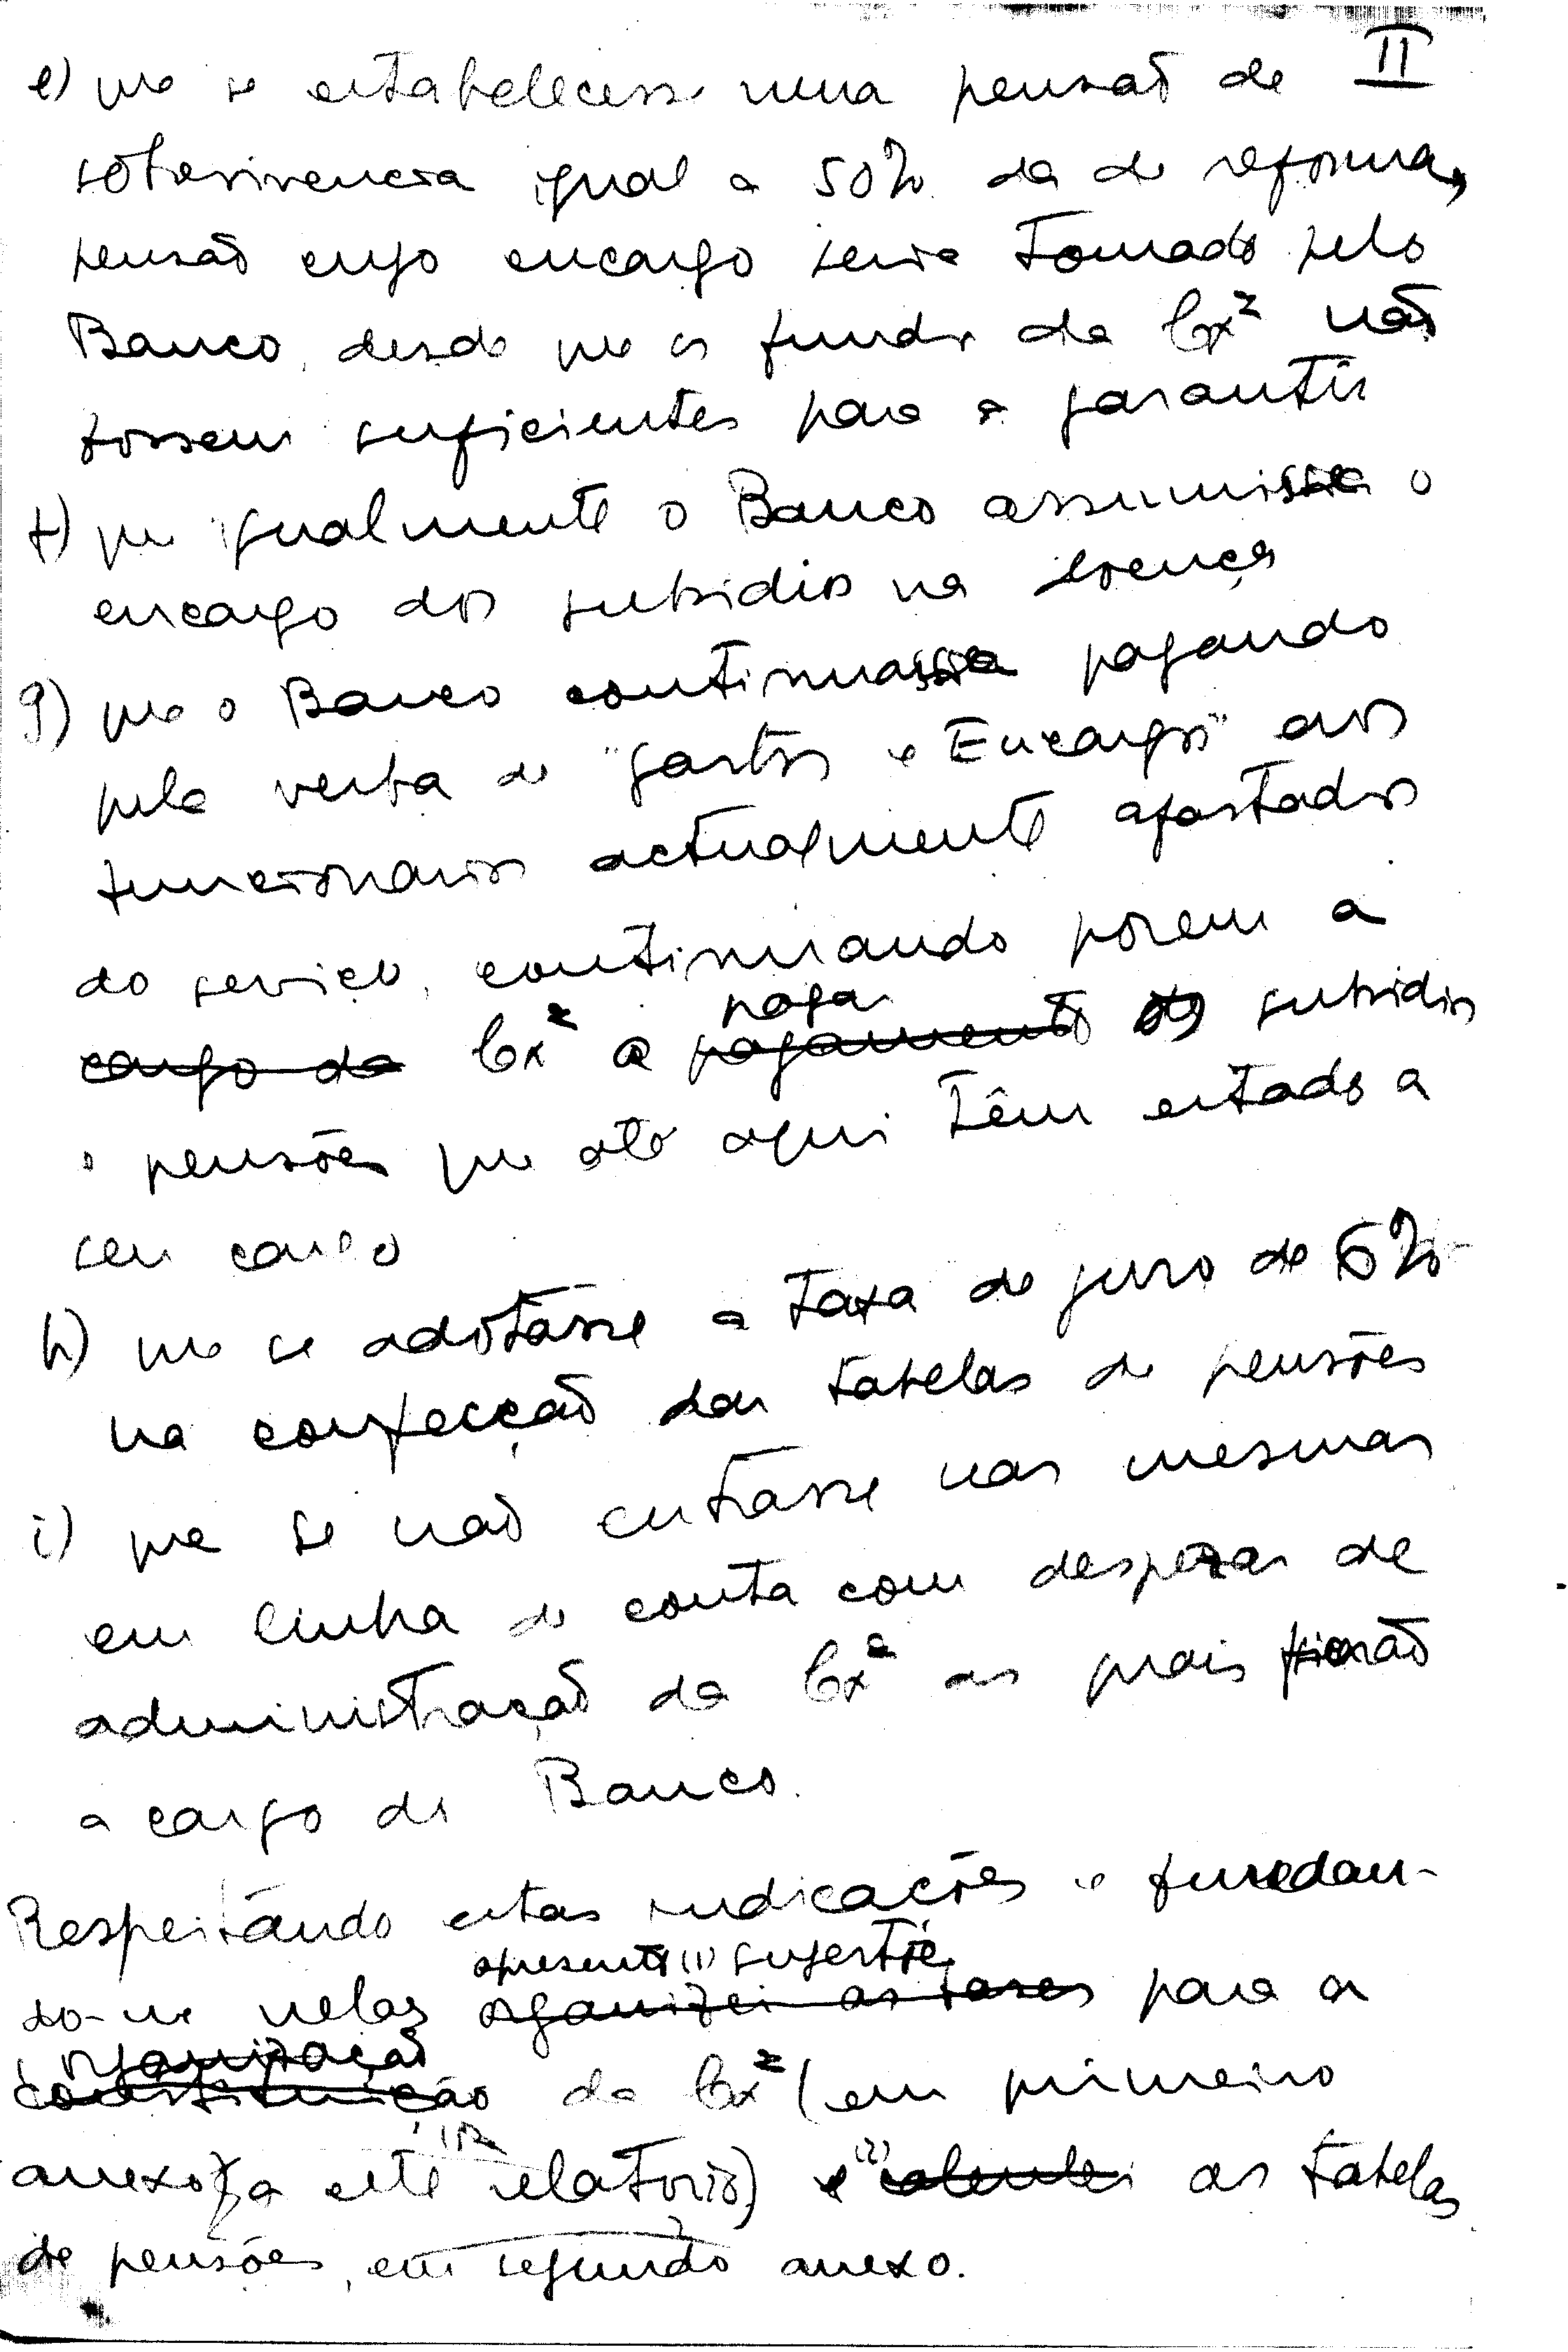 II
e) que se estabelecesse uma pensão de
sobrevivencia igual a 50% da de reforma,
pensão cujo encargo seria tomado pelo
Banco, desde que os fundos da Cxª não
fossem suficientes para a garantir
f) que igualmente o Banco assumisse o
encargo dos subsidios na doença
g) que o Banco continuasse pagando
pela verba de "Gastos e Encargos" aos
funcionarios actualmente afastados
do serviço, continuando porem a
pagar
cargo da Cxª a pagamento os subsidios
e pensões que até aqui têm estado a
seu cargo
h) que se adotásse a taxa de juro de 6%
na confecção das tabelas de pensões
i) que se não entrásse nas mesmas
em linha de conta com despezas de
administração da Cxª as quais ficarão
a cargo do Banco.
Respeitando estas indicações e fundan-
apresento (1) sugestões
do-me nelas organizei as bases para a
organização
constituição da Cxª (em primeiro
anexo a este relatorio) e (2) calculei as tabelas
de pensões, em segundo anexo.